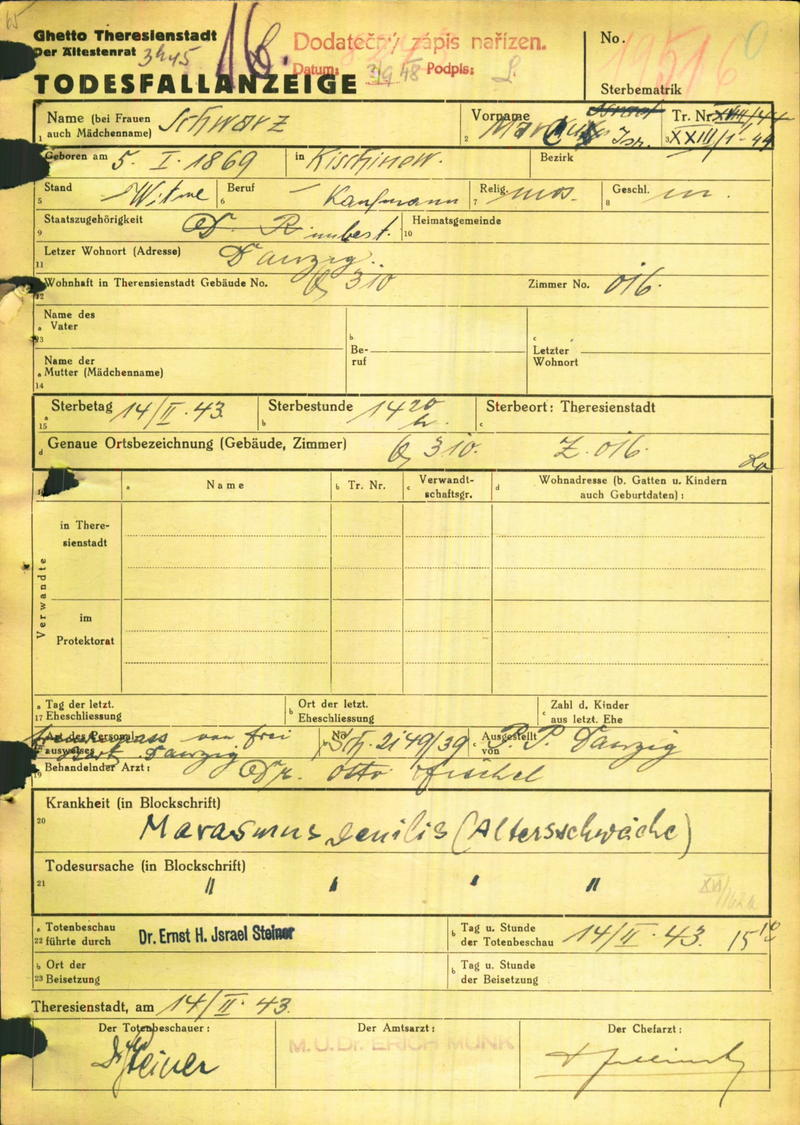 Ghetto Theresienstadt
Der Ältestenrat
16.
Dodatečný zápis nařízen.
Datum: Podpis:
TODESFALLANZEIGE
No. 19516
Sterbematrik
Name (bei Frauen auch Mädchenname) Schwarz
1
Vorname Isr.
2
Tr. Nr. XXIII/1-44
3
Geboren am 5. I. 1869
in Kischinew.
Bezirk
Stand Witwe
5
Beruf Kaufmann
6
Relig. mos.
7
Geschl. m.
8
Staatszugehörigkeit
9
Heimatsgemeinde
10
Letzer Wohnort (Adresse) Danzig.
11
Wohnhaft in Theresienstadt Gebäude No. Q 310
12
Zimmer No. 016.
Name des
a Vater
13
b
Be-
ruf
c
Letzter
Wohnort
Name der
a Mutter (Mädchenname)
14
a Sterbetag 14/II. 43.
15
b Sterbestunde 14 20 h.
c Sterbeort: Theresienstadt
d Genaue Ortsbezeichnung (Gebäude, Zimmer) Q 310. Z. 016.
a Name
b Tr. Nr.
c Verwandt-
schaftsgr.
d Wohnadresse (b. Gatten u. Kindern
auch Geburtdaten):
Verwandte
in There-
sienstadt
im
Protektorat
a Tag der letzt.
17 Eheschliessung
b Ort der letzt.
Eheschliessung
c Zahl d. Kinder
aus letzt. Ehe
Art des Personal-
ausweises von frei
Danzig
No 2149/39
c Ausgestellt
von P. P. Danzig
Behandelnder Arzt: Dr. Otto
19
Krankheit (in Blockschrift)
20
Marasmus senilis (Altersschwäche)
Todesursache (in Blockschrift)
21
" " " "
a Totenbeschau
22 führte durch Dr. Ernst H. Jsrael Steiner
b Tag u. Stunde
der Totenbeschau 14/II. 43. 15 10
b Ort der
23 Beisetzung
b Tag u. Stunde
der Beisetzung
Theresienstadt, am 14/II. 43.
Der Totenbeschauer:
Dr Steiner
Der Amtsarzt:
M.U.Dr. ERICH MUNK
Der Chefarzt: